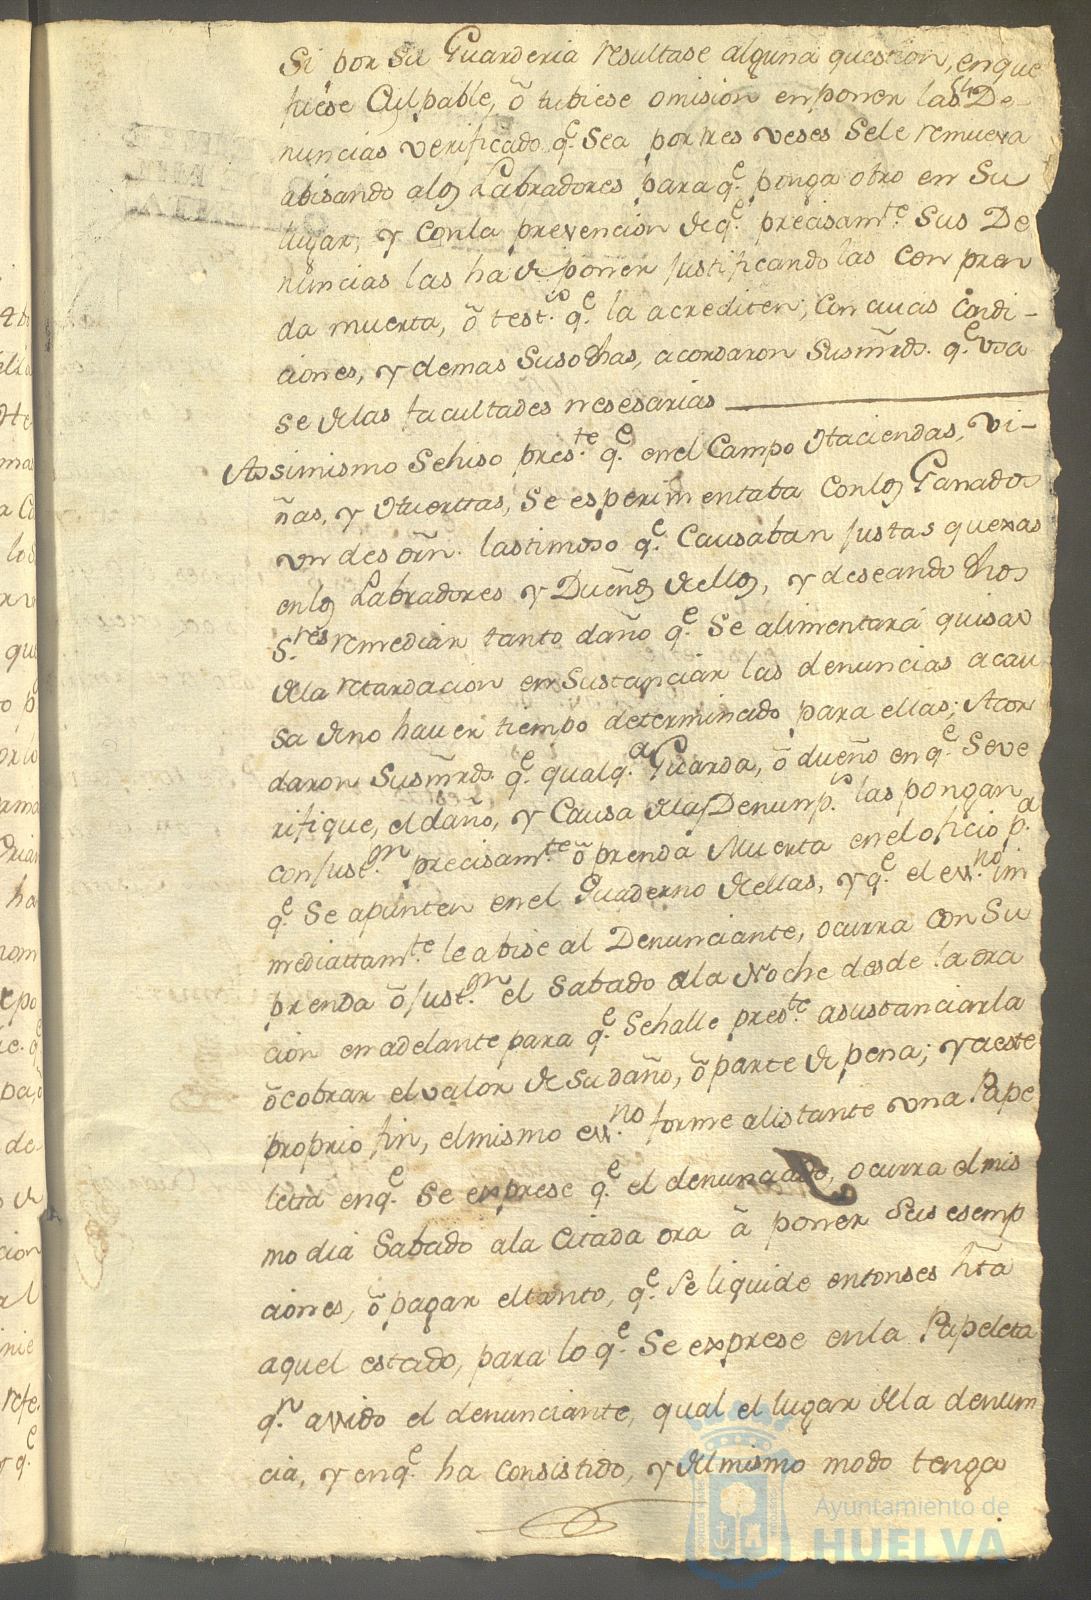 Si por Su Guarderia resultase alguna question, en que
fuese Culpable, ô tubiese omision en poner las De-
nuncias verificado q.e Sea por tres veses Sele remueva
abisando alos Labradores para q.e ponga otro en Su
lugar, y Conla prevencion de q.e precisam.te Sus De
nuncias las ha de poner justificandolas Con pren
da muerta, ô test.os q.e la acrediten; Con cuias Condi-
ciones, y demas Susodhas, acordaron Susmrds. q.e usa
se delas facultades nesesarias
Assimismo Sehiso pres.te q.e en el Campo Haciendas, Vi-
ñas, y Huertas, Se esperimentaba Conlos Ganados
un desorn. lastimoso q.e Causaban justas quexas
enlos Labradores y Dueños dellos, y deseando dhos
S.res remediar tanto daño q.e Se alimentará quisas
dela retardacion en Sustanciar las denuncias acau
sa deno haver tiempo determinado para ellas; Acor
daron Susmrds. q.e qualq.a Guarda, ô dueño en q.e Seve
rifique, el daño, y Causa delas Denunp.s las pongan
con just.on precisam.te ô prenda Muerta en el oficio p.a
q.e Se apunten en el Quaderno dellas, y q.e el ess.no im
mediattam.te le abise al Denunciante, ocurra con Su
prenda ô just.on el Sabado ala Noche desde la ora
cion en adelante para q.e Sehalle pres.te asustanciarla
ô cobrar el valor de su daño, ô parte de pena; y a este
proprio fin, el mismo ess.no forme al istante una Pape
letta en q.e Se exprese q.e el denunciado, ocurra el mis
mo dia Sabado ala Citada ora â poner Sus esemp
ciones, ô pagar el tanto, q.e Se liquide entonses hta
aquel estado, para lo q.e Se exprese enla Papeleta
q.n avido el denunciante, qual el lugar dela denun
cia, y en q.e ha Consistido, y del mismo modo tenga
Ayuntamiento de
HUELVA